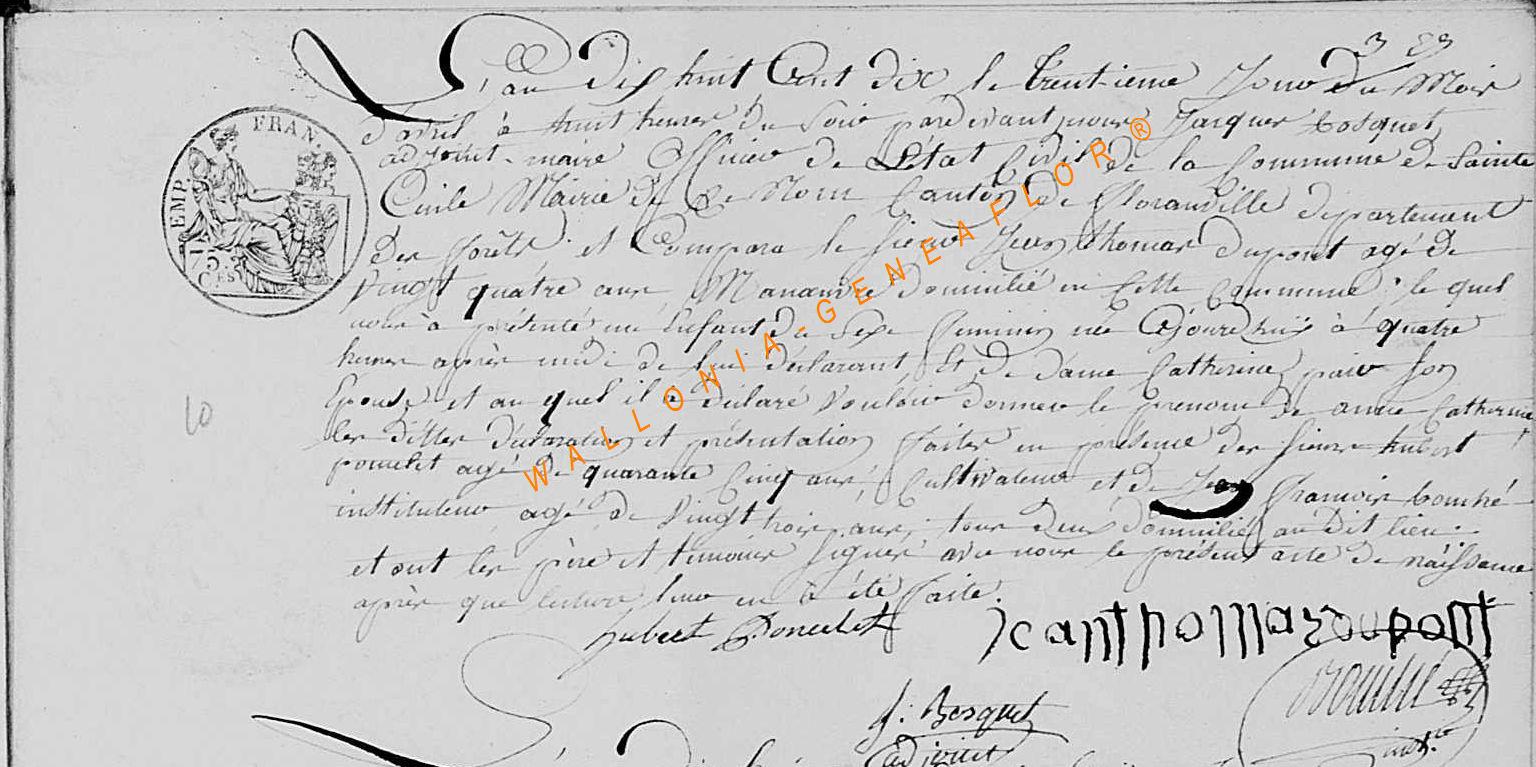 L'an dix huit Cent dix le trentieme Jour du Mois
d'avril à huit heures du Soir pardevant nous Jacques bosquet
adjoint-maire Officier de L'état Civil de la Commune de Sainte
Cécile Mairie de Ce Nom Canton de Floranville département
Des forêts, et Comparu le Sieur Jean thomas dupont agé de
Vingt quatre ans, Manœuvre domicilié en Cette Commune, le quel
nous à présenté un Enfant du Sexe féminin née Cejourdhuis à quatre
heures après midi de lui déclarant Et de dame Catherine son
Epouse et au quel il a Déclaré Vouloir donner le prenom de anne Catherine
les dittes déclaration et présentation faites en présence des Sieurs hubert
poncelet agé de quarante Cinq ans, Cultivateur et de Jean François
instituteur agé de Vingt trois ans, tous deux domiciliés au dit lieu.
et ont les père et témoins Signés avec nous le présent acte de naissance
après que lecture leur en à été faite.
hubert Poncelet
Jeanthomas dupont
J. Bosquet
adjoint
EMP. FRAN.
75
Ces
10
WALLONIA-GENEAFLOR®